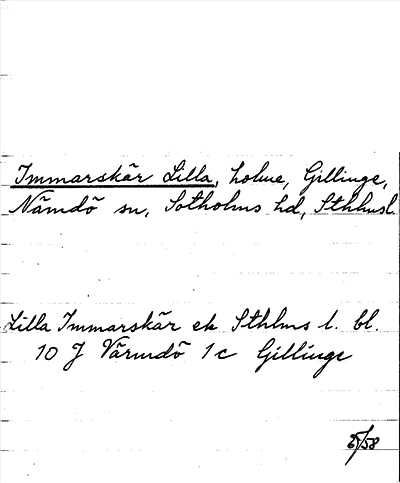 Immarskär Lilla, holme, Gillinge,
Nämdö sn, Sotholms hd, Sthlmsl.
Lilla Immarskär ek Sthlms l. bl.
10 J Värmdö 1c Gillinge
/58